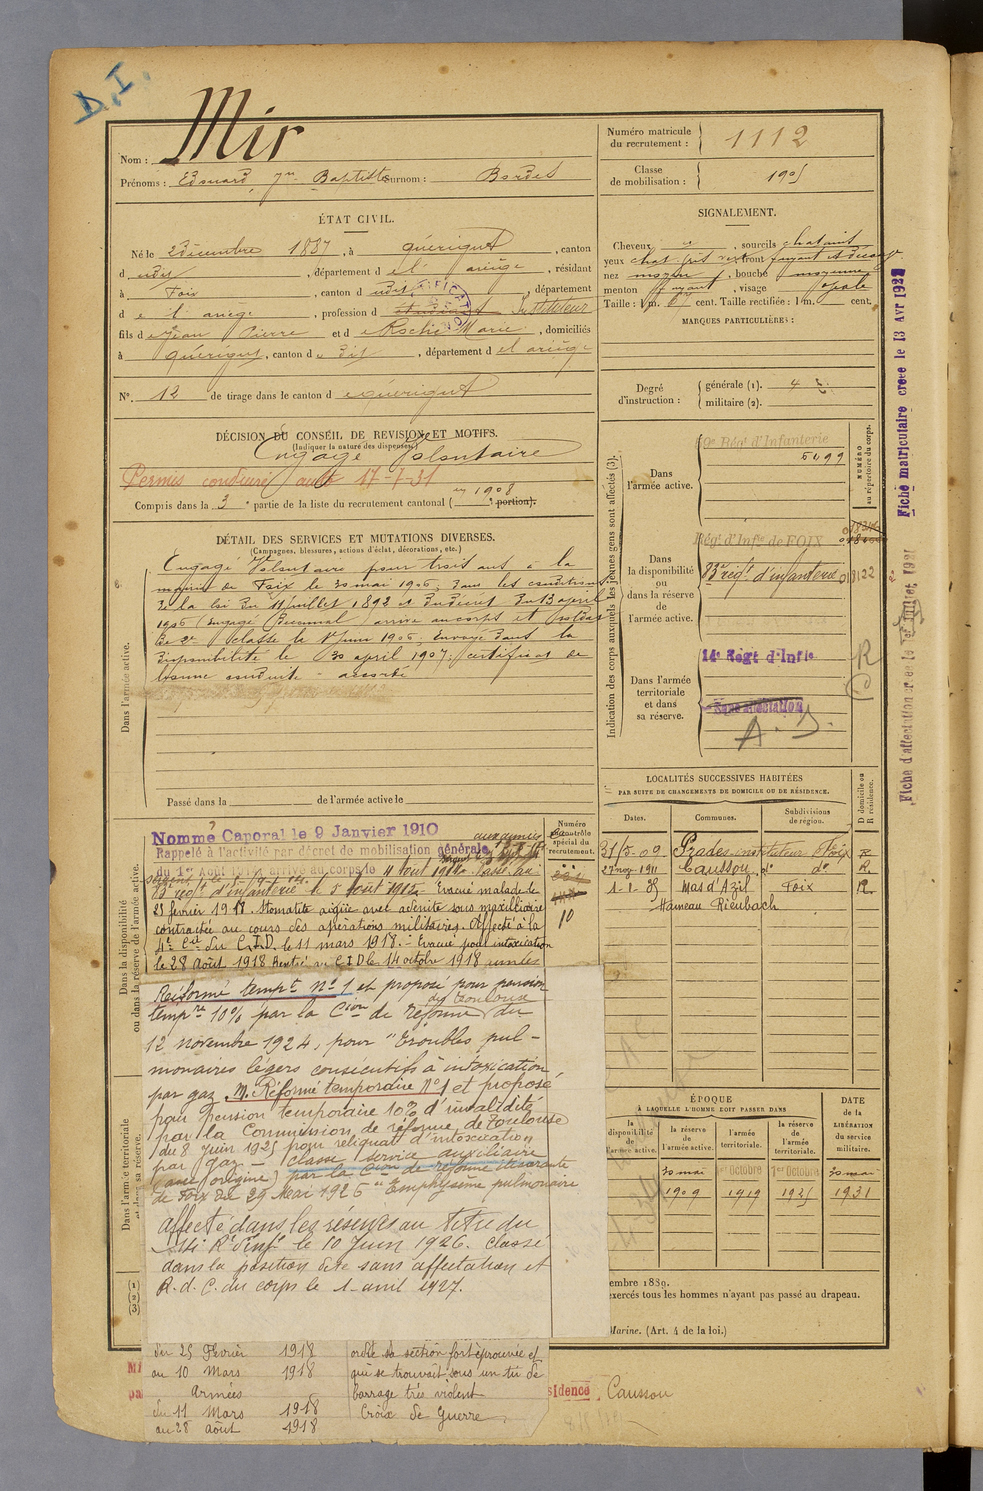 D.I.
Nom : Mir
Prénoms : Edouard Jn Baptiste Surnom : Bordes
Numéro matricule
du recrutement : 1112
Classe
de mobilisation : 1905
ÉTAT CIVIL.
Né le 2 décembre 1887, à Quérigut, canton
d udit, département de l'ariège, résidant
à Foix, canton d udit, département
de l'ariège, profession d étudiant Instituteur
fils de Jean Pierre et de Marie, domiciliés
à Quérigut, canton du dit, département de l'ariège
N° 12 de tirage dans le canton de Quérigut
SIGNALEMENT.
Cheveux, sourcils chatains
yeux chat. gris, front fuyant
nez moyen, bouche moyenne
menton fuyant, visage ovale
Taille : 1 m. cent. Taille rectifiée : 1 m. cent.
MARQUES PARTICULIÈRES :
Degré
d'instruction :
générale (1). 4
militaire (2).
DÉCISION DU CONSEIL DE REVISION ET MOTIFS.
(Indiquer la nature des dispenses.)
Engagé Volontaire
Permis conduire auto 17-7-31
Compris dans la 3e partie de la liste du recrutement cantonal ( en 1908 e portion).
DÉTAIL DES SERVICES ET MUTATIONS DIVERSES.
(Campagnes, blessures, actions d'éclat, décorations, etc.)
Dans l'armée active.
Engagé Volontaire pour trois ans à la
mairie de Foix le 30 mai 1906, dans les conditions
de la loi du 11 juillet 1892 et du décret du 13 april
1906 (engagé), arrivé au corps et soldat
de 2e classe le 1er Juin 1906. Envoyé dans la
disponibilité le 30 april 1907; certificat de
bonne conduite - accordé
Passé dans la de l'armée active le
Indication des corps auxquels les jeunes gens sont affectés (3).
NUMÉRO
au répertoire du corps.
Dans
l'armée active.
59e Régt d'Infanterie
5499
Dans
la disponibilité
ou
dans la réserve
de
l'armée active.
Régt d'Infie de FOIX
83e régt d'infanterie 018122
Dans l'armée
territoriale
et dans
sa réserve.
14e Régt d'Infie
Sans affectation
A. D.
R
Fiche matriculaire créée le 13 Avr 1922
Fiche d'affectation créée le 1er Juillet 1921
LOCALITÉS SUCCESSIVES HABITÉES
PAR SUITE DE CHANGEMENTS DE DOMICILE OU DE RÉSIDENCE.
Dates. Communes. Subdivisions de région. D domicile ou R résidence.
31-5-09 Prades instituteur Foix R
27 nov. 1911 Caussou do do R.
1-1-35 Mas d'Azil Foix R
Hameau Rieubach
Dans la disponibilité
ou dans la réserve de l'armée active.
Numéro
au contrôle
spécial du
recrutement.
10
Nommé Caporal le 9 Janvier 1910
Rappelé à l'activité par décret de mobilisation générale
du 1er Août 1914, arrivé au corps le 11 aout 1914. Passé au
83e régt d'infanterie le 5 Août 1915. Evacué malade le
25 février 1918. Stomatite aigüe avec adénite sous maxillaire
contractée au cours des opérations militaires. Affecté à la
4e Cie du C.I.D. le 11 mars 1918. - Evacué pour intoxication
le 28 Août 1918 Rentré au C.I.D le 14 octobre 1918
Réformé tempre n° 1 et proposé pour pension
tempre 10% par la Cion de réforme de Toulouse du
12 novembre 1924, pour "troubles pul-
monaires légers consécutifs à intoxication
par gaz M. Réformé temporaire N°1 et proposé
pour pension temporaire 10% d'invalidité
par la Commission de réforme de Toulouse
du 8 Juin 1925 pour reliquat d'intoxication
par gaz - classé service auxiliaire
(sans origine) par la Cion de réforme itinérante
de Foix du 29 Mai 1926 "Emphysème pulmonaire
affecté dans les réserves au titre du
14e Rt d'Infie le 10 Juin 1926. classé
dans la position dite sans affectation et
R. d. C. du corps le 1 avril 1927.
Dans l'armée territoriale
et dans sa réserve.
ÉPOQUE
À LAQUELLE L'HOMME DOIT PASSER DANS
la disponibilité de l'armée active.
la réserve de l'armée active.
l'armée territoriale.
la réserve de l'armée territoriale.
DATE
de la
LIBÉRATION
du service
militaire.
30 mai 1909
1er Octobre 1919
1er Octobre 1925
30 mai 1931
(1)
(2)
(3)
embre 1889.
exercés tous les hommes n'ayant pas passé au drapeau.
Marine. (Art. 4 de la loi.)
du 25 Février 1918
au 10 Mars 1918
Armées
du 11 Mars 1918
au 28 Août 1918
ordre sa section fort éprouvée et
qui se trouvait sous un tir de
barrage très violent
Croix de Guerre
sidence Caussou